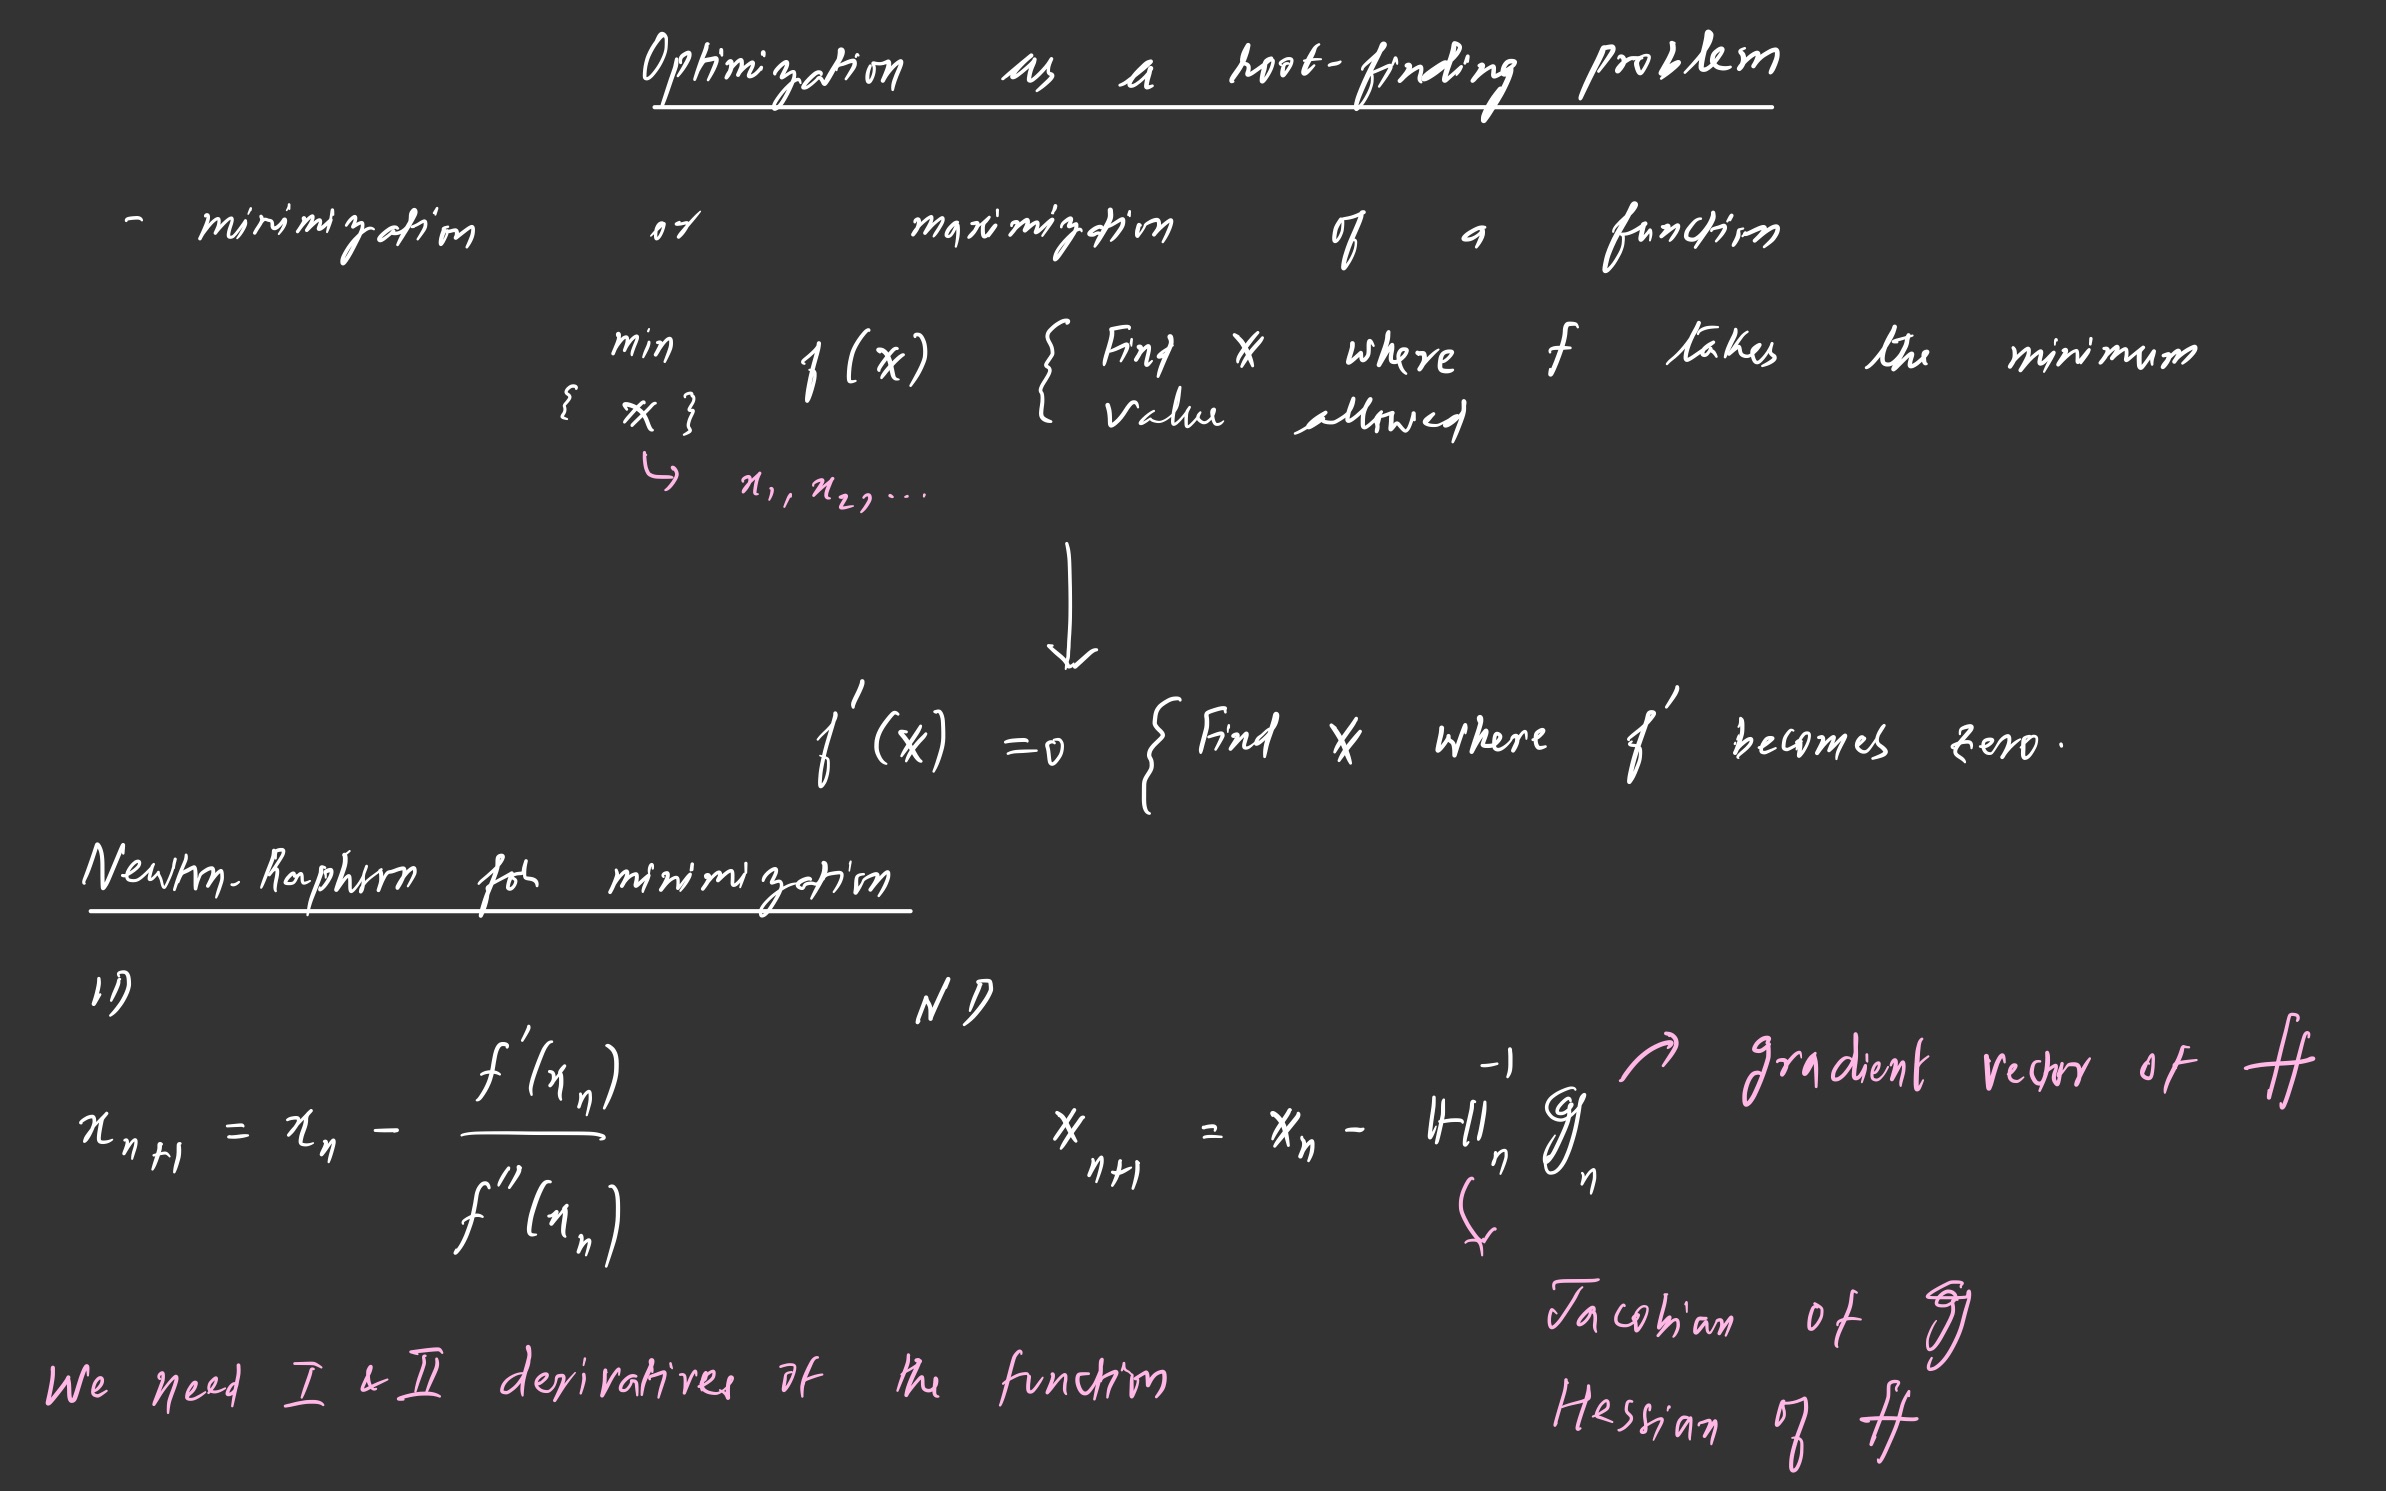 Optimization as a root-finding problem
- minimization or maximization of a function
min f(x) { Find x where f takes the minimum
{ x } value allowed
↳ x₁, x₂, ...
↓
f'(x) = 0 { Find x where f' becomes zero.
Newton-Raphson for minimization
1D ND
xₙ₊₁ = xₙ - f'(xₙ) / f''(xₙ)
xₙ₊₁ = xₙ - Hₙ⁻¹ gₙ → gradient vector of f
Jacobian of g
We need I & II derivatives of the function
Hessian of f